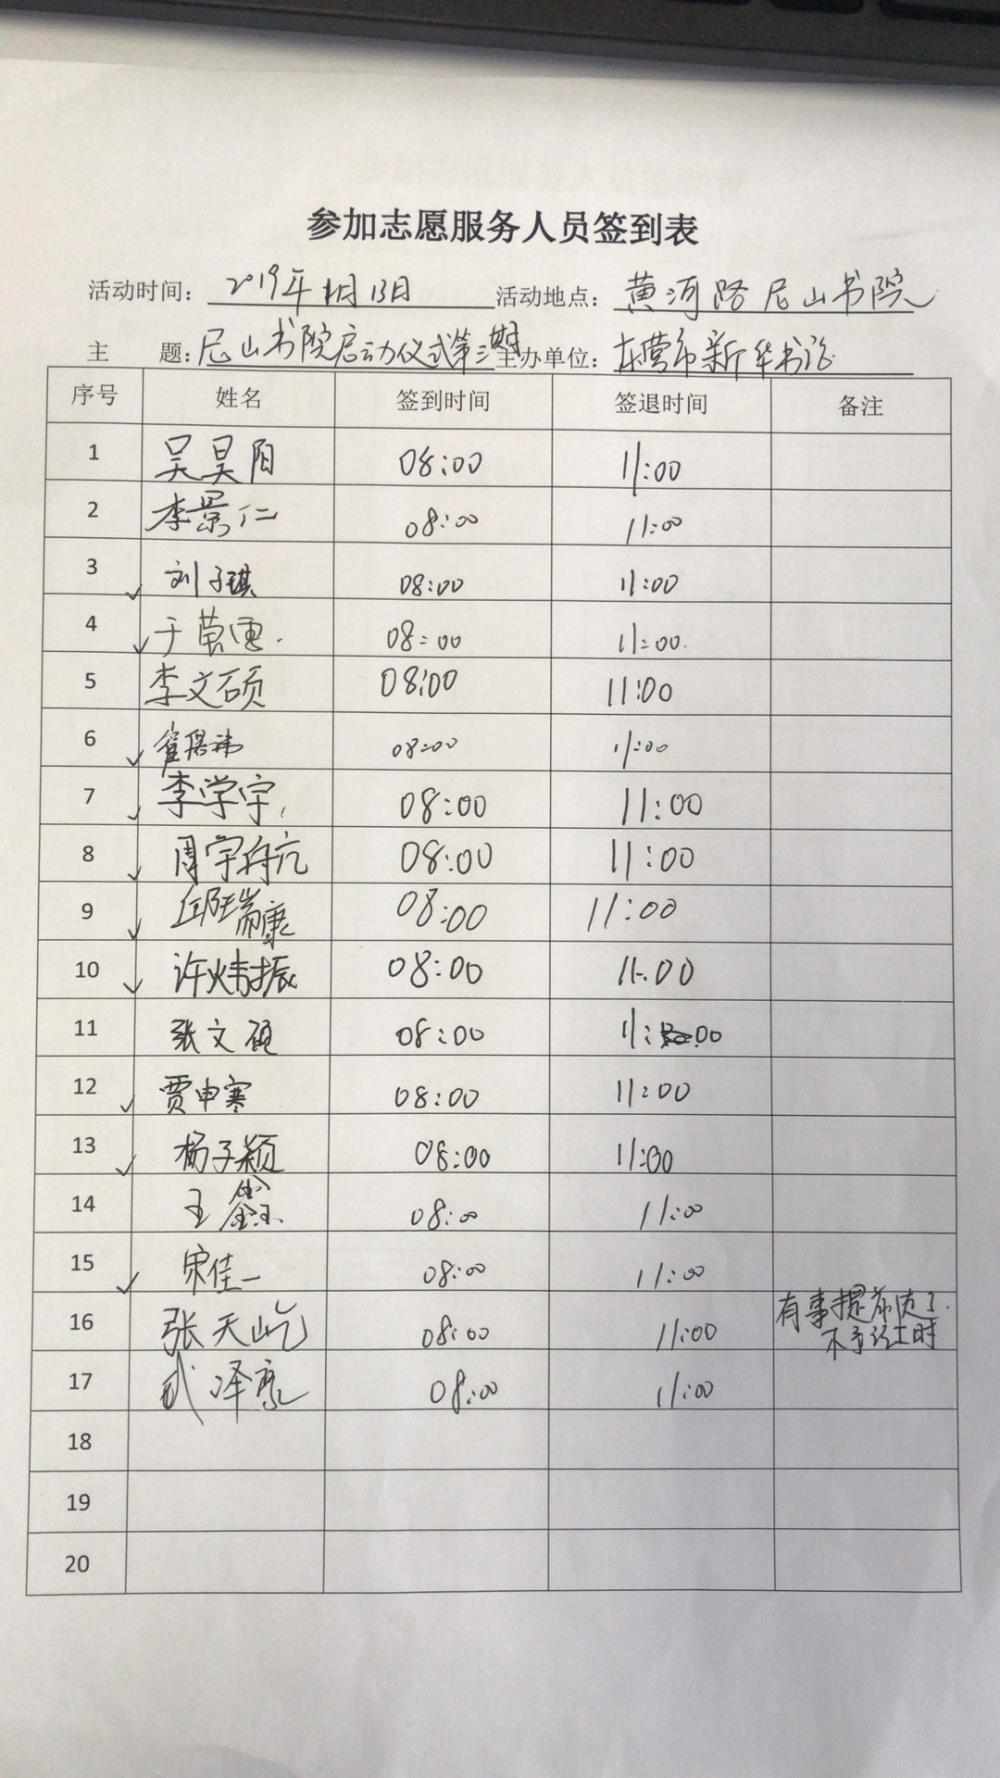 参加志愿服务人员签到表
活动时间：2019年1月13日 活动地点：黄河路尼山书院
主 题：尼山书院启动仪式第三期 主办单位：东营市新华书店
序号 姓名 签到时间 签退时间 备注
1 吴昊阳 08:00 11:00
2 李景仁 08:00 11:00
3 刘子琪 08:00 11:00
4 于 08:00 11:00
5 李文硕 08:00 11:00
6 08:00 11:00
7 李学宇 08:00 11:00
8 周宇 08:00 11:00
9 邱瑞康 08:00 11:00
10 许炜振 08:00 11:00
11 张文硕 08:00 11:00
12 贾申寒 08:00 11:00
13 杨子颖 08:00 11:00
14 王鑫 08:00 11:00
15 宋佳一 08:00 11:00
16 张天屹 08:00 11:00 有事提前走了.
不予记工时
17 武泽 08:00 11:00
18
19
20